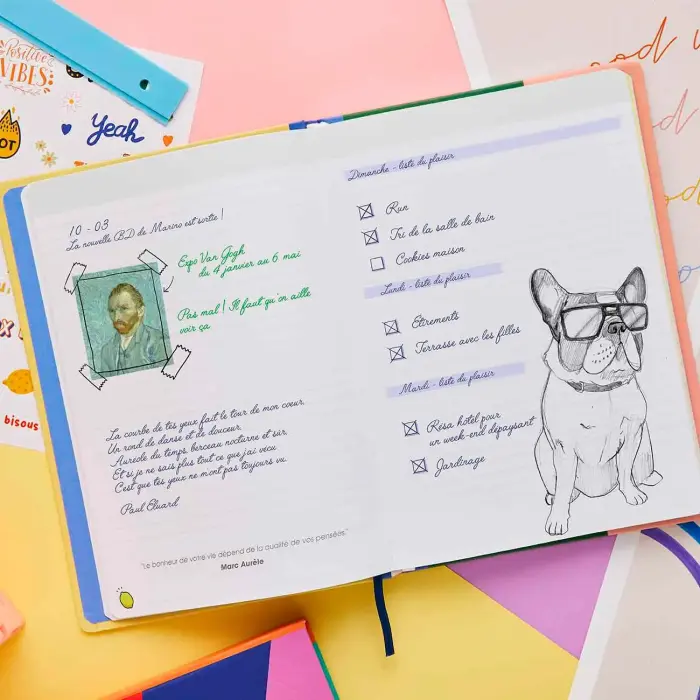 Positive
VIBES
Yeah
10 - 03
La nouvelle BD de Marino est sortie !
Expo Van Gogh
du 4 janvier au 6 mai
Pas mal ! Il faut qu'on aille
voir ça
La courbe de tes yeux fait le tour de mon coeur,
Un rond de danse et de douceur,
Auréole du temps, berceau nocturne et sûr,
Et si je ne sais plus tout ce que j'ai vécu
C'est que tes yeux ne m'ont pas toujours vu.
Paul Eluard
"Le bonheur de votre vie dépend de la qualité de vos pensées."
Marc Aurèle
bisous
Dimanche - liste du plaisir
Run
Tri de la salle de bain
Cookies maison
Lundi - liste du plaisir
Etirements
Terrasse avec les filles
Mardi - liste du plaisir
Résa hôtel pour
un week-end dépaysant
Jardinage